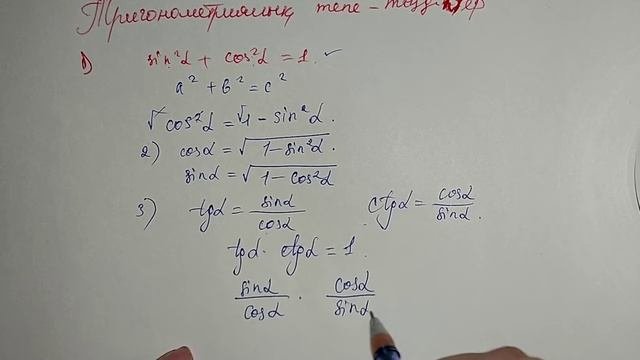 Тригонометриялық тепе-теңдіктер
1) sin²α + cos²α = 1. ✓
a² + b² = c²
√cos²α = √1 − sin²α.
2) cosα = √1−sin²α.
sinα = √1−cos²α
3) tgα = sinα/cosα ctgα = cosα/sinα.
tgα · ctgα = 1.
sinα/cosα · cosα/sinα